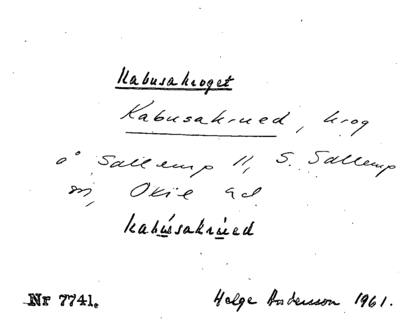 Kabusakroget
Kabusakrued, krog
å Sallerup 11, S. Sallerup
sn, Oxie hd
kabusakrued
Nr 7741.
Helge Andersson 1961.